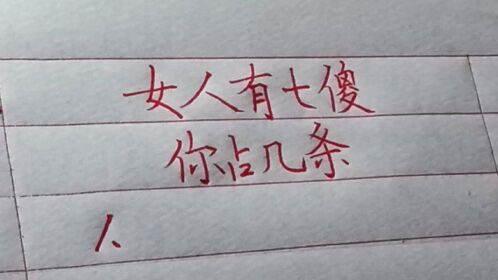 女人有七傻
你占几条
1、